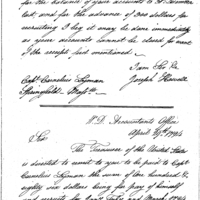 for the balance of your accounts to 31 December
last, and for the advance of 200 dollars for
recruiting I beg it may be done immediately
as your accounts cannot be closed for want
of the receipt last mentioned.
I am Sir &c
Joseph Howell
Capt. Cornelius Lyman
Springfield. Mass.
W.D. Accountants Office
April 29th 1794
Sir
The Treasurer of the United States
is directed to remit to you to be paid to Capt
Cornelius Lyman the sum of one hundred &
eighty six dollars being for pay of himself
and recruits for Feby and March 1794